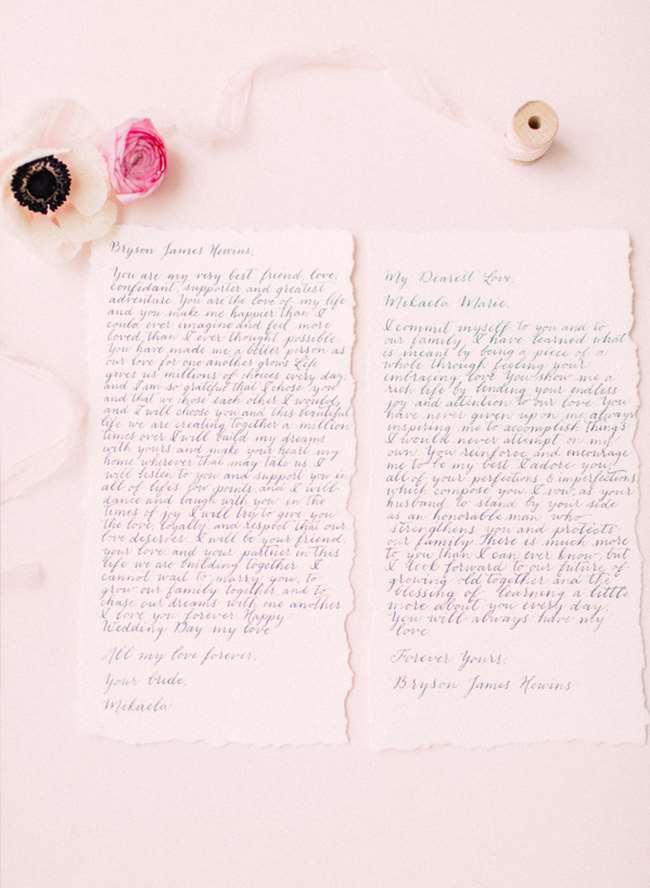 Bryson James Howins,
You are my very best friend, love,
confidant, supporter and greatest
adventure. You are the love of my life
and you make me happier than I
could ever imagine and feel more
loved than I ever thought possible.
You have made me a better person as
our love for one another grows. Life
gives us millions of choices every day
and I am so grateful that I chose you
and that we chose each other. I would
and I will choose you and this beautiful
life we are creating together a million
times over. I will build my dreams
with yours and make your heart my
home wherever that may take us. I
will listen to you and support you in
all of life's low points and I will
dance and laugh with you in the
times of joy. I will try to give you
the love, loyalty and respect that our
love deserves. I will be your friend,
your love and your partner in this
life we are building together. I
cannot wait to marry you, to
grow our family together and to
chase our dreams with one another.
I love you forever. Happy
Wedding Day my love
All my love forever,
Your bride,
Mikaela
My Dearest Love,
Mikaela Marie,
I commit myself to you and to
our family. I have learned what
is meant by being a piece of a
whole through feeling your
embracing love. You show me a
rich life by lending your endless
joy and attention to our love. You
have never given up on me always
inspiring me to accomplish things
I would never attempt on my
own. You reinforce and encourage
me to be my best. I adore you,
all of your perfections & imperfections
which compose you. I vow, as your
husband to stand by your side
as an honorable man who
strengthens you and protects
our family. There is much more
to you than I can ever know, but
I look forward to our future of
growing old together and the
blessing of learning a little
more about you every day.
You will always have my
love
Forever Yours,
Bryson James Howins